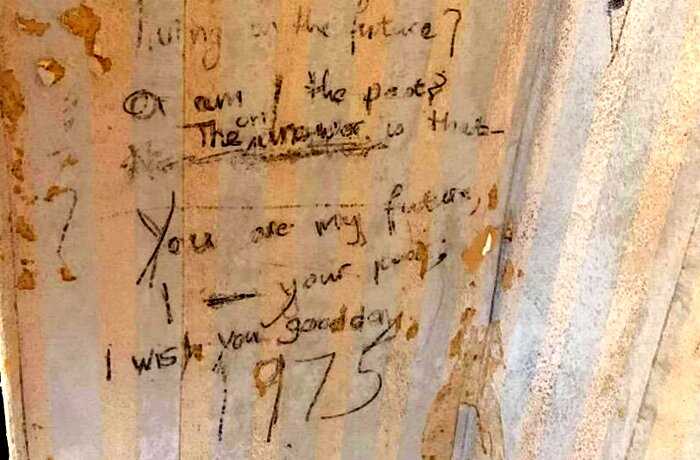 living in the future?
Or am I the past?
The only answer is that—
You are my future,
I — your past;
I wish you good day.
1975